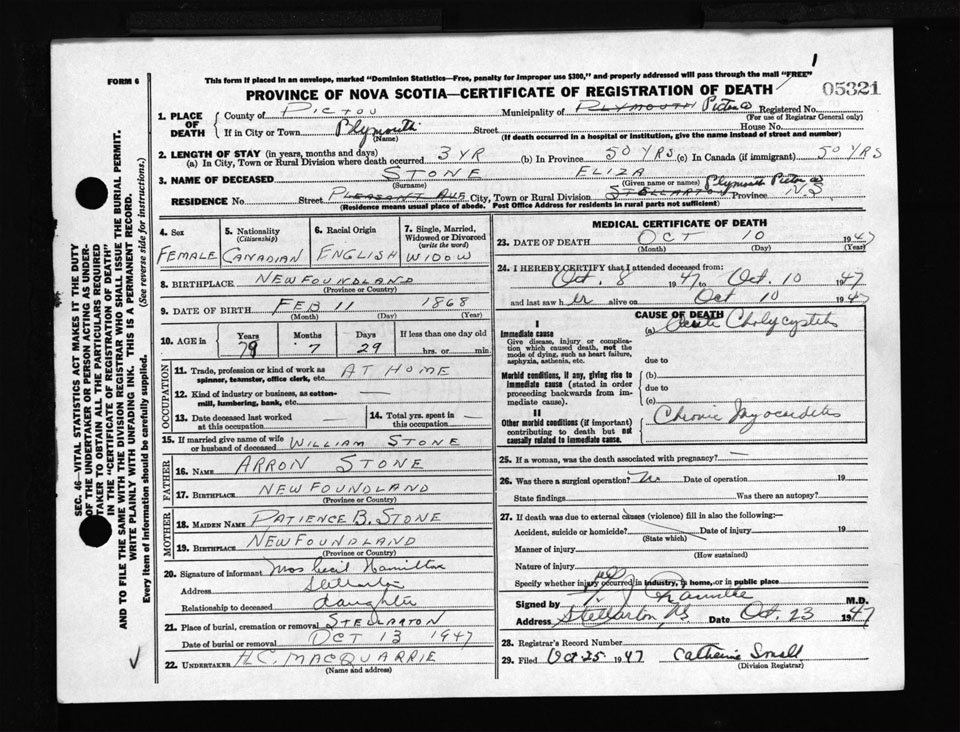 1
FORM 6
This form if placed in an envelope, marked "Dominion Statistics—Free, penalty for improper use $300," and properly addressed will pass through the mail "FREE"
PROVINCE OF NOVA SCOTIA—CERTIFICATE OF REGISTRATION OF DEATH
05321
1. PLACE OF DEATH
County of PICTOU Municipality of PLYMOUTH Pictou Co Registered No.
(For use of Registrar General only)
If in City or Town Plymouth Street House No.
(Name) (If death occurred in a hospital or institution, give the name instead of street and number)
2. LENGTH OF STAY (in years, months and days)
(a) In City, Town or Rural Division where death occurred 3 YR (b) In Province 50 YRS (c) In Canada (if immigrant) 50 YRS
3. NAME OF DECEASED STONE ELIZA
(Surname) (Given name or names) Plymouth Pictou Co
RESIDENCE No. Street PLEASANT AVE City, Town or Rural Division STELLARTON Province N.S
(Residence means usual place of abode. Post Office Address for residents in rural parts not sufficient)
4. Sex
FEMALE
5. Nationality
(Citizenship)
CANADIAN
6. Racial Origin
ENGLISH
7. Single, Married, Widowed or Divorced
(write the word)
WIDOW
8. BIRTHPLACE NEWFOUNDLAND
(Province or Country)
9. DATE OF BIRTH FEB 11 1868
(Month) (Day) (Year)
10. AGE in
Years Months Days If less than one day old
79 7 29 hrs. or min.
OCCUPATION
11. Trade, profession or kind of work as spinner, teamster, office clerk, etc. AT HOME
12. Kind of industry or business, as cotton-mill, lumbering, bank, etc. —
13. Date deceased last worked at this occupation —
14. Total yrs. spent in this occupation —
15. If married give name of wife or husband of deceased WILLIAM STONE
FATHER
16. NAME ARRON STONE
17. BIRTHPLACE NEWFOUNDLAND
(Province or Country)
MOTHER
18. MAIDEN NAME PATIENCE B. STONE
19. BIRTHPLACE NEWFOUNDLAND
(Province or Country)
20. Signature of informant Mrs Cecil Hamilton
Address Stellarton
Relationship to deceased daughter
21. Place of burial, cremation or removal STELLARTON
Date of burial or removal OCT 13 1947
22. UNDERTAKER H.C. MACQUARRIE
(Name and address)
MEDICAL CERTIFICATE OF DEATH
23. DATE OF DEATH OCT 10 1947
(Month) (Day) (Year)
24. I HEREBY CERTIFY that I attended deceased from:
Oct. 8 1947 to Oct. 10 1947
and last saw her alive on Oct 10 1947
CAUSE OF DEATH
I
Immediate cause
Give disease, injury or complication which caused death, not the mode of dying, such as heart failure, asphyxia, asthenia, etc.
(a) Acute Cholycystitis
due to
Morbid conditions, if any, giving rise to immediate cause (stated in order proceeding backwards from immediate cause).
(b)
due to
(c)
II
Other morbid conditions (if important) contributing to death but not causally related to immediate cause.
Chronic Myocarditis
25. If a woman, was the death associated with pregnancy? —
26. Was there a surgical operation? No Date of operation 19
State findings Was there an autopsy?
27. If death was due to external causes (violence) fill in also the following:—
Accident, suicide or homicide? Date of injury 19
(State which)
Manner of injury
(How sustained)
Nature of injury
Specify whether injury occurred in industry, in home, or in public place
Signed by M.D.
Address Stellarton N.S. Date Oct. 23 1947
28. Registrar's Record Number
29. Filed Oct 25 1947 Catherine Small
(Division Registrar)
SEC. 46—VITAL STATISTICS ACT MAKES IT THE DUTY
OF THE UNDERTAKER OR PERSON ACTING AS UNDER-
TAKER TO OBTAIN ALL THE PARTICULARS REQUIRED
IN THE "CERTIFICATE OF REGISTRATION OF DEATH"
AND TO FILE THE SAME WITH THE DIVISION REGISTRAR WHO SHALL ISSUE THE BURIAL PERMIT.
WRITE PLAINLY WITH UNFADING INK. THIS IS A PERMANENT RECORD.
Every item of information should be carefully supplied. (See reverse side for instructions.)